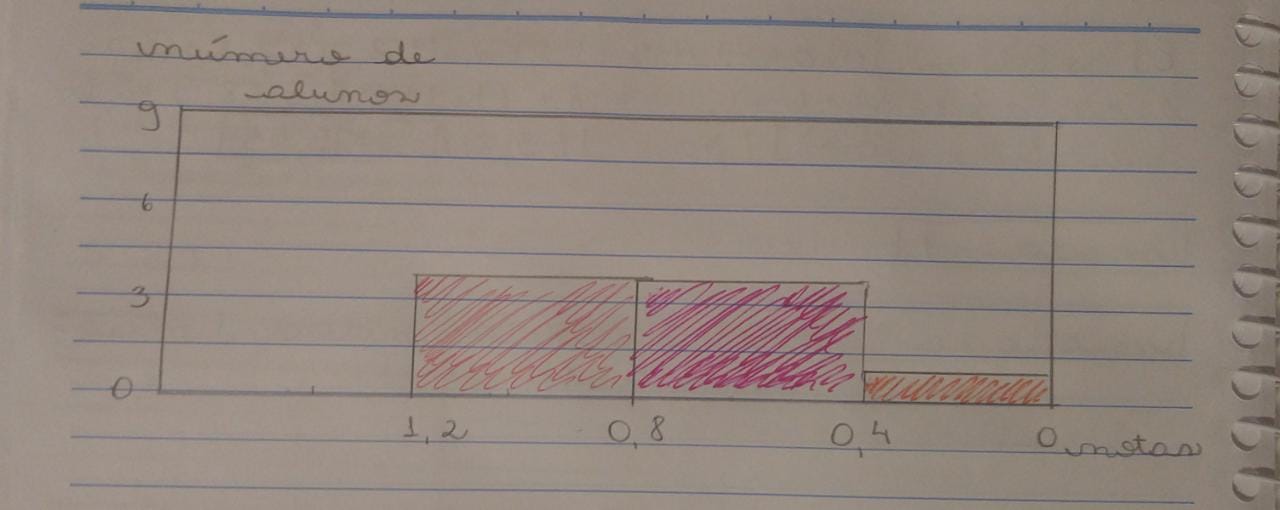 número de
alunos
9
6
3
0
1,2 0,8 0,4 0 notas